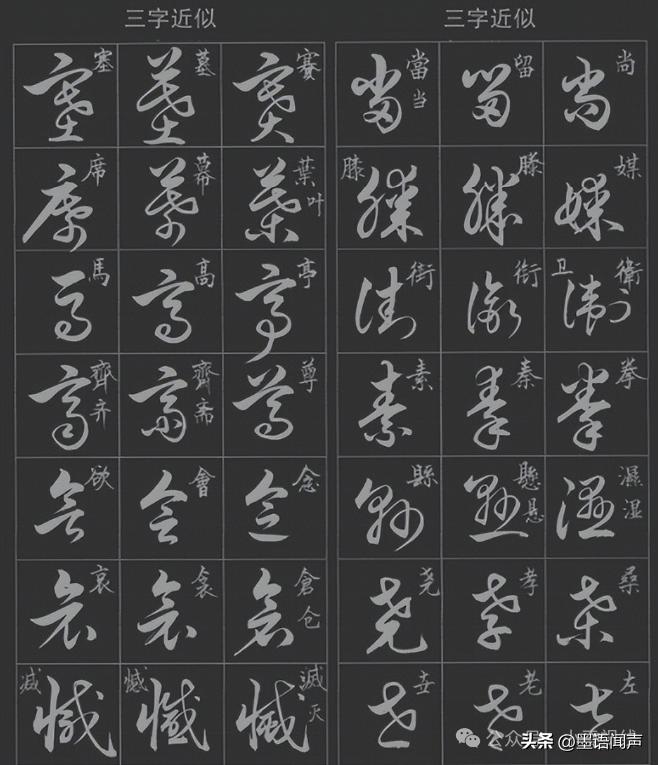 三字近似 三字近似
塞 墓 賽 當 当 留 尚
席 幕 葉 叶 膝 滕 媒
馬 高 亭 街 衍 卫 衛
齊 齐 齋 斋 尊 素 秦 拳
欲 會 念 縣 懸 悬 濕 湿
哀 衾 倉 仓 尧 孝 桑
减 憾 滅 灭 老 左
头条 @墨语闻声